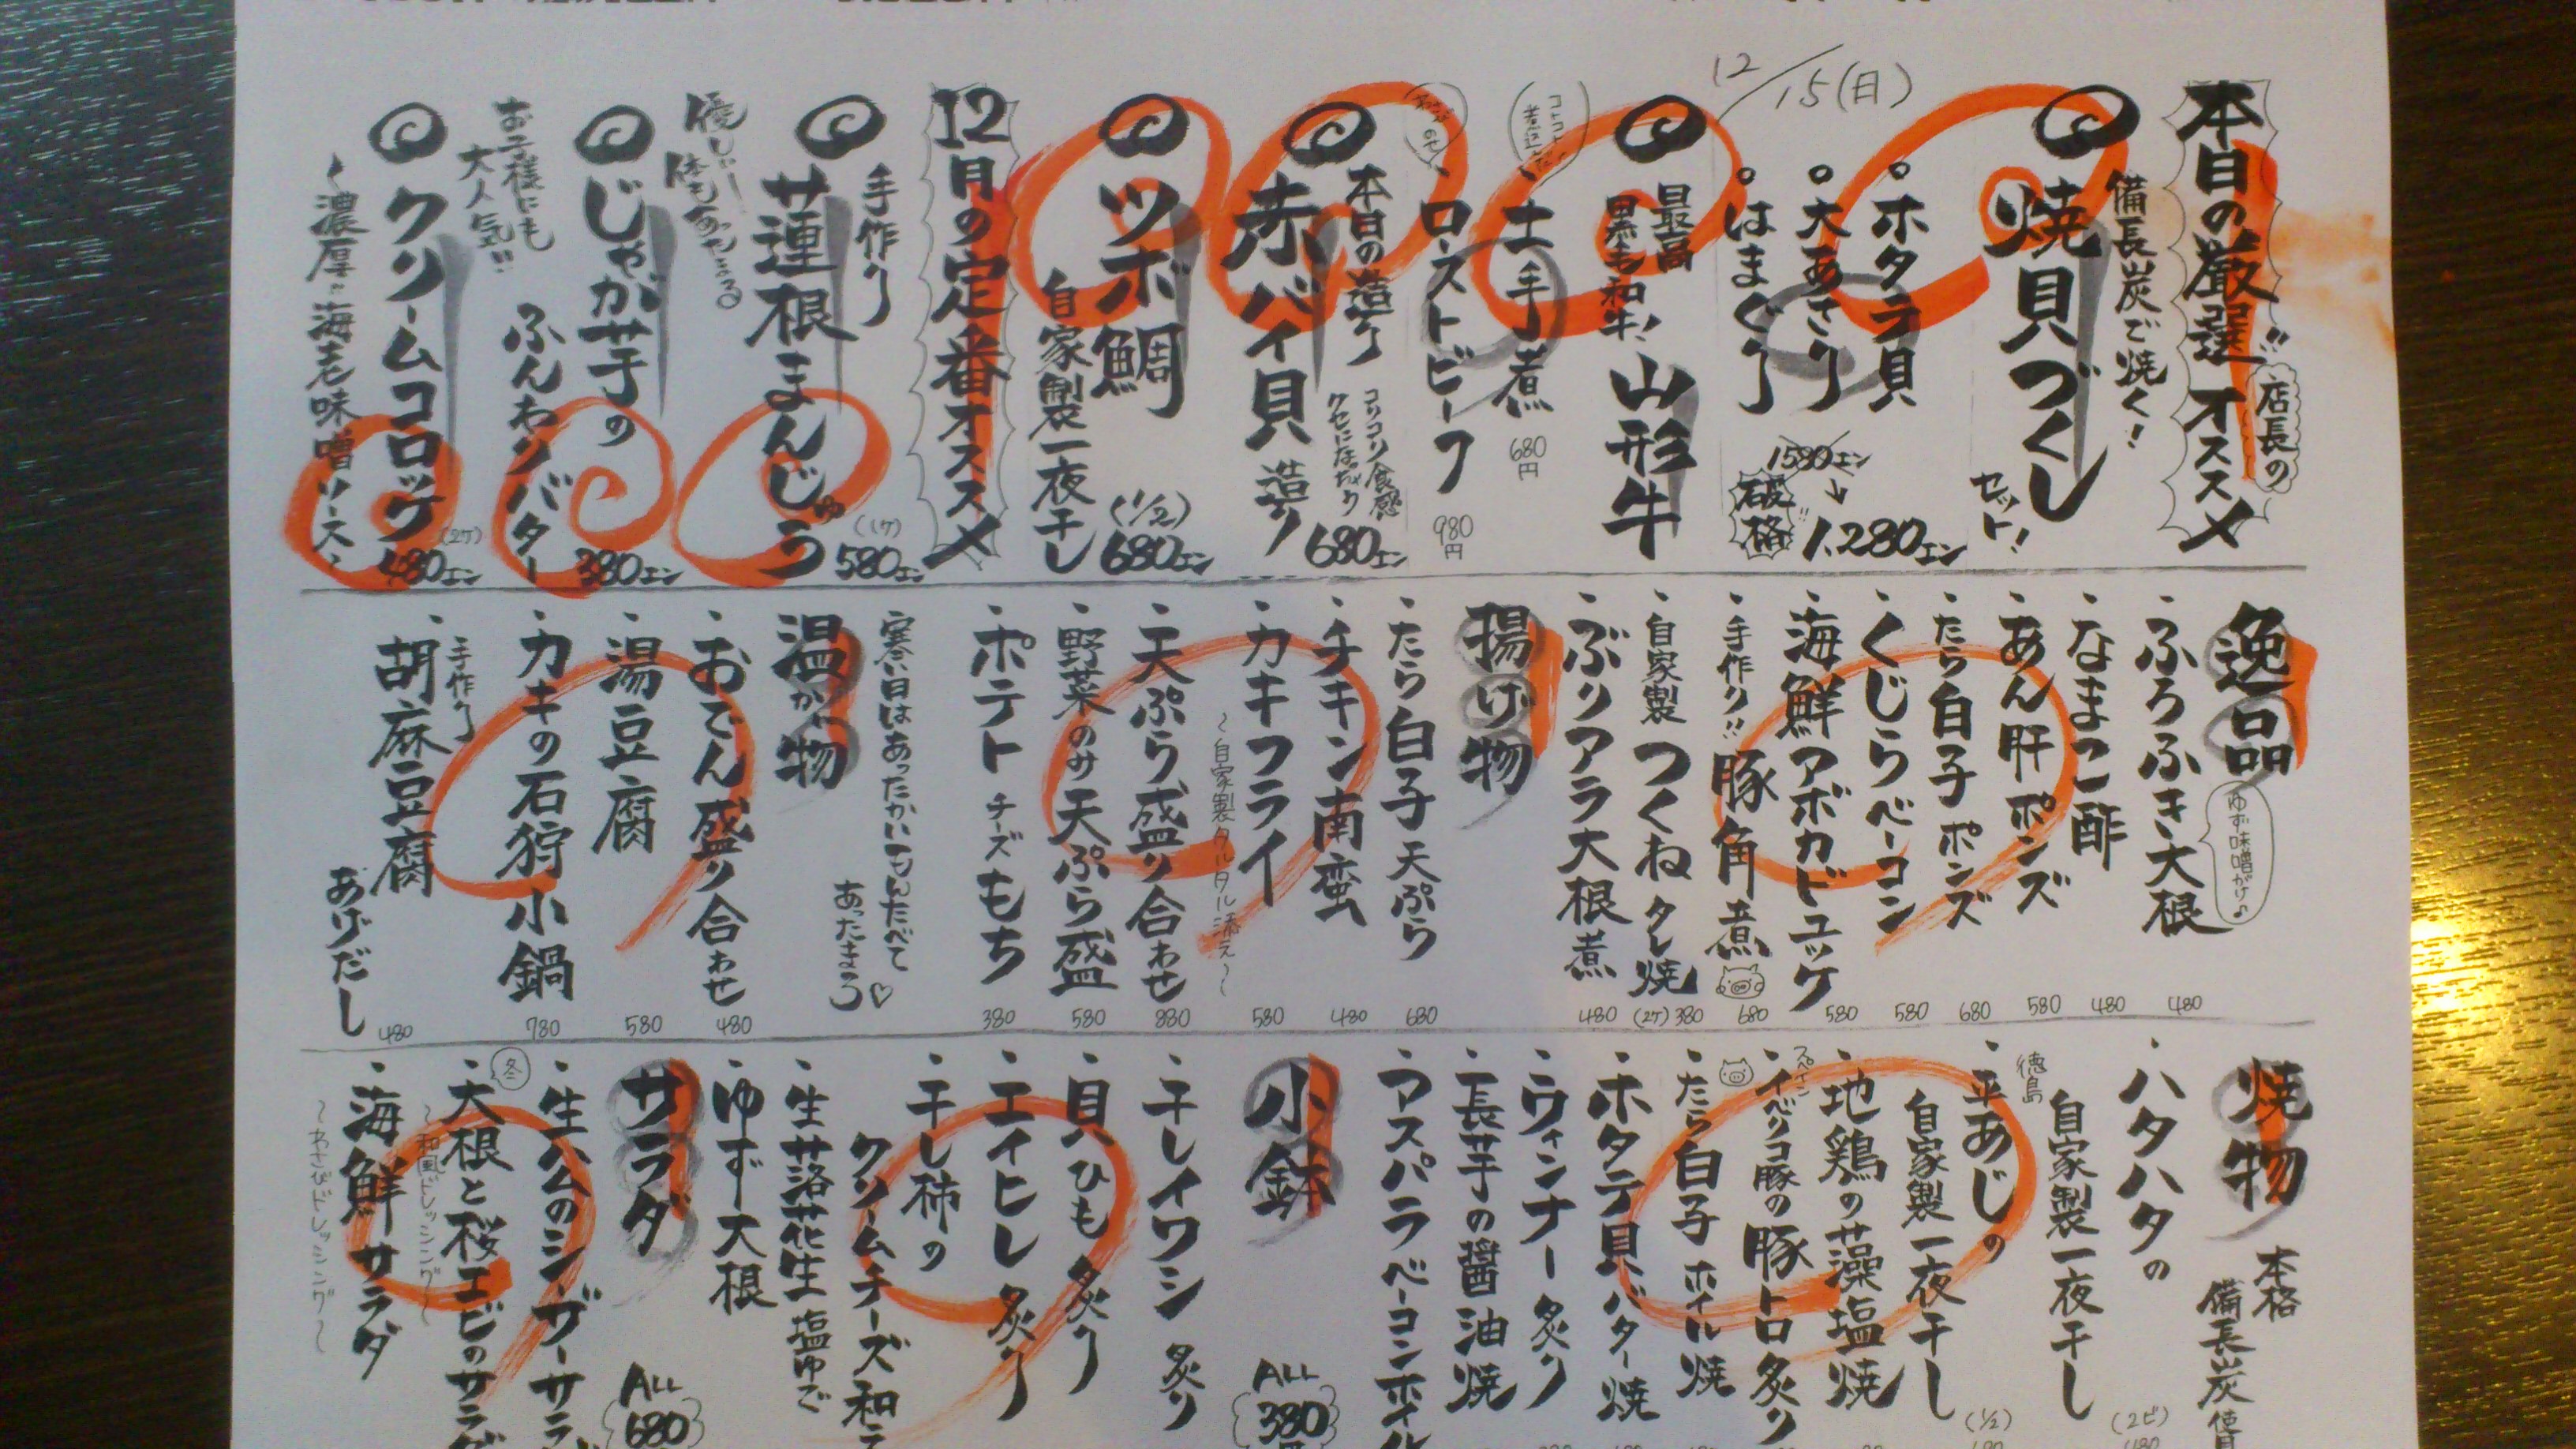 12/15(日)
本日の厳選オススメ!!
店長の
備長炭で焼く!
焼貝づくし
セット!
ホタテ貝
大あさり
はまぐり
1580エン
↓
1,280エン
破格!!
最高
黒毛和牛!
山形牛
コトコト
土手煮
680円
ローストビーフ
980円
本日の造り
赤バイ貝
造り
コリコリ食感
クセになっちゃう
680エン
ツボ鯛
自家製一夜干し
(1/2)
680エン
12月の定番オススメ
手作り
蓮根まんじゅう
(1ケ)
580エン
じゃが芋の
ふんわりバター
380エン
お子様にも
大人気!!
クリームコロッケ
(2ケ)
480エン
〜濃厚!!海老味噌ソース〜
逸品
・ふろふき大根
ゆず味噌がけ♪
480
・なまこ酢
480
・あん肝ポンズ
580
・たら白子ポンズ
680
・くじらベーコン
580
・海鮮アボカドユッケ
580
・手作り!!豚角煮
680
・自家製つくねタレ焼
(2ケ)380
・ぶりアラ大根煮
480
揚げ物
・たら白子天ぷら
680
・チキン南蛮
480
・カキフライ
〜自家製タルタル添え〜
580
・天ぷら盛り合わせ
880
・野菜のみ天ぷら盛
580
・ポテトチーズもち
380
温か物
寒い日はあったかいもんたべて
あったまろ♡
・おでん盛り合わせ
480
・湯豆腐
580
・カキの石狩小鍋
780
・手作り
胡麻豆腐
あげだし
480
焼物
本格
備長炭使
・ハタハタの
自家製一夜干し
(2ビ)
480
徳島
・平あじの
自家製一夜干し
(1/2)
・地鶏の藻塩焼
スペイン
・イベリコ豚の豚トロ炙り
・たら白子ホイル焼
・ホタテ貝バター焼
・ウィンナー炙り
・長芋の醤油焼
・アスパラベーコンホイル
小鉢
ALL
380
・干しイワシ炙り
・貝ひも炙り
・エイヒレ炙り
・干し柿の
クリームチーズ和え
・生落花生塩ゆで
・ゆず大根
サラダ
ALL
680
・生ハムのシーザーサラダ
冬
・大根と桜エビのサラダ
〜和風ドレッシング〜
・海鮮サラダ
〜わさびドレッシング〜